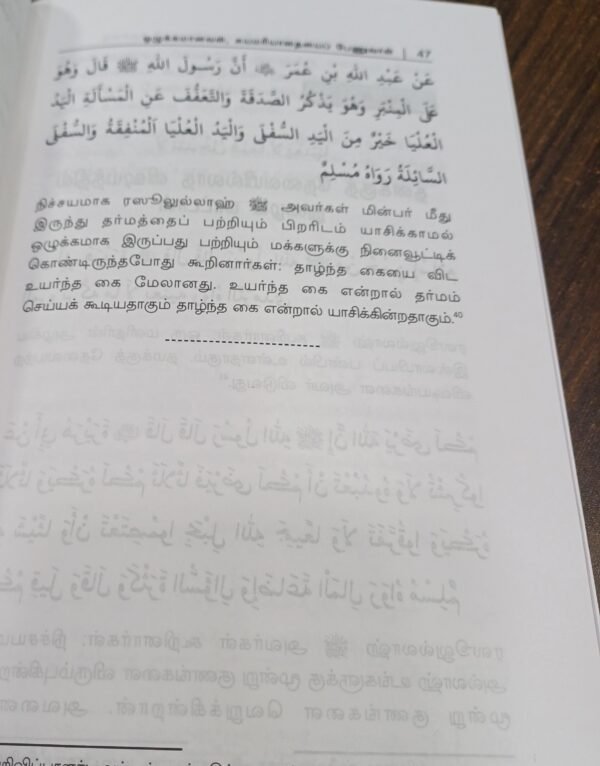 ஒழுக்கமானவன், சுயமரியாதையைப் பேணுவான் | 47
عَنْ عَبْدِ اللهِ بْنِ عُمَرَ ؓ أَنَّ رَسُولَ اللهِ ﷺ قَالَ وَهُوَ
عَلَى الْمِنْبَرِ وَهُوَ يَذْكُرُ الصَّدَقَةَ وَالتَّعَفُّفَ عَنِ الْمَسْأَلَةِ الْيَدُ
الْعُلْيَا خَيْرٌ مِنَ الْيَدِ السُّفْلَى وَالْيَدُ الْعُلْيَا الْمُنْفِقَةُ وَالسُّفْلَى
السَّائِلَةُ رَوَاهُ مُسْلِمٌ
நிச்சயமாக ரஸூலுல்லாஹ் ﷺ அவர்கள் மின்பர் மீது
இருந்து தர்மத்தைப் பற்றியும் பிறரிடம் யாசிக்காமல்
ஒழுக்கமாக இருப்பது பற்றியும் மக்களுக்கு நினைவூட்டிக்
கொண்டிருந்தபோது கூறினார்கள்: தாழ்ந்த கையை விட
உயர்ந்த கை மேலானது. உயர்ந்த கை என்றால் தர்மம்
செய்யக் கூடியதாகும் தாழ்ந்த கை என்றால் யாசிக்கின்றதாகும்.⁴⁰